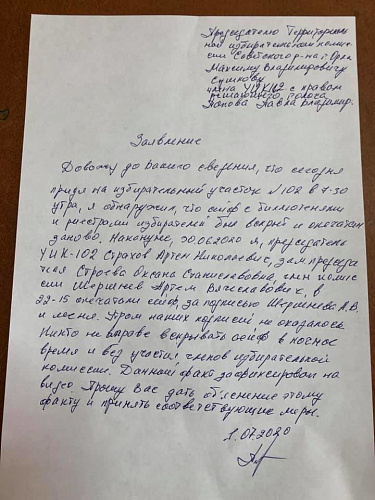 Председателю Территориаль
ной избирательной комис
сии Советского р-на г. Орла
Максиму Владимировичу
члена УИК 102 с правом
решающего голоса
Попова Павла Владимир.
Заявление
Довожу до Вашего сведения, что сегодня
придя на избирательный участок N 102 в 7-30
утра, я обнаружил, что сейф с бюллетенями
и реестрами избирателей был вскрыт и опечатан
заново. Накануне, 30.06.2020 г, председатель
УИК-102 Страхов Артем Николаевич, зам председа
теля Строева Оксана Станиславовна, член комис
сии Шершнев Артем Вячеславович, в
22-15 опечатали сейф, за подписью Шершнева А.В.
и моей. Утром наших подписей не оказалось.
Никто не вправе вскрывать сейф в ночное
время и без участия членов избирательной
комиссии. Данный факт зафиксирован на
видео. Прошу Вас дать объяснение этому
факту и принять соответствующие меры.
1.07.2020